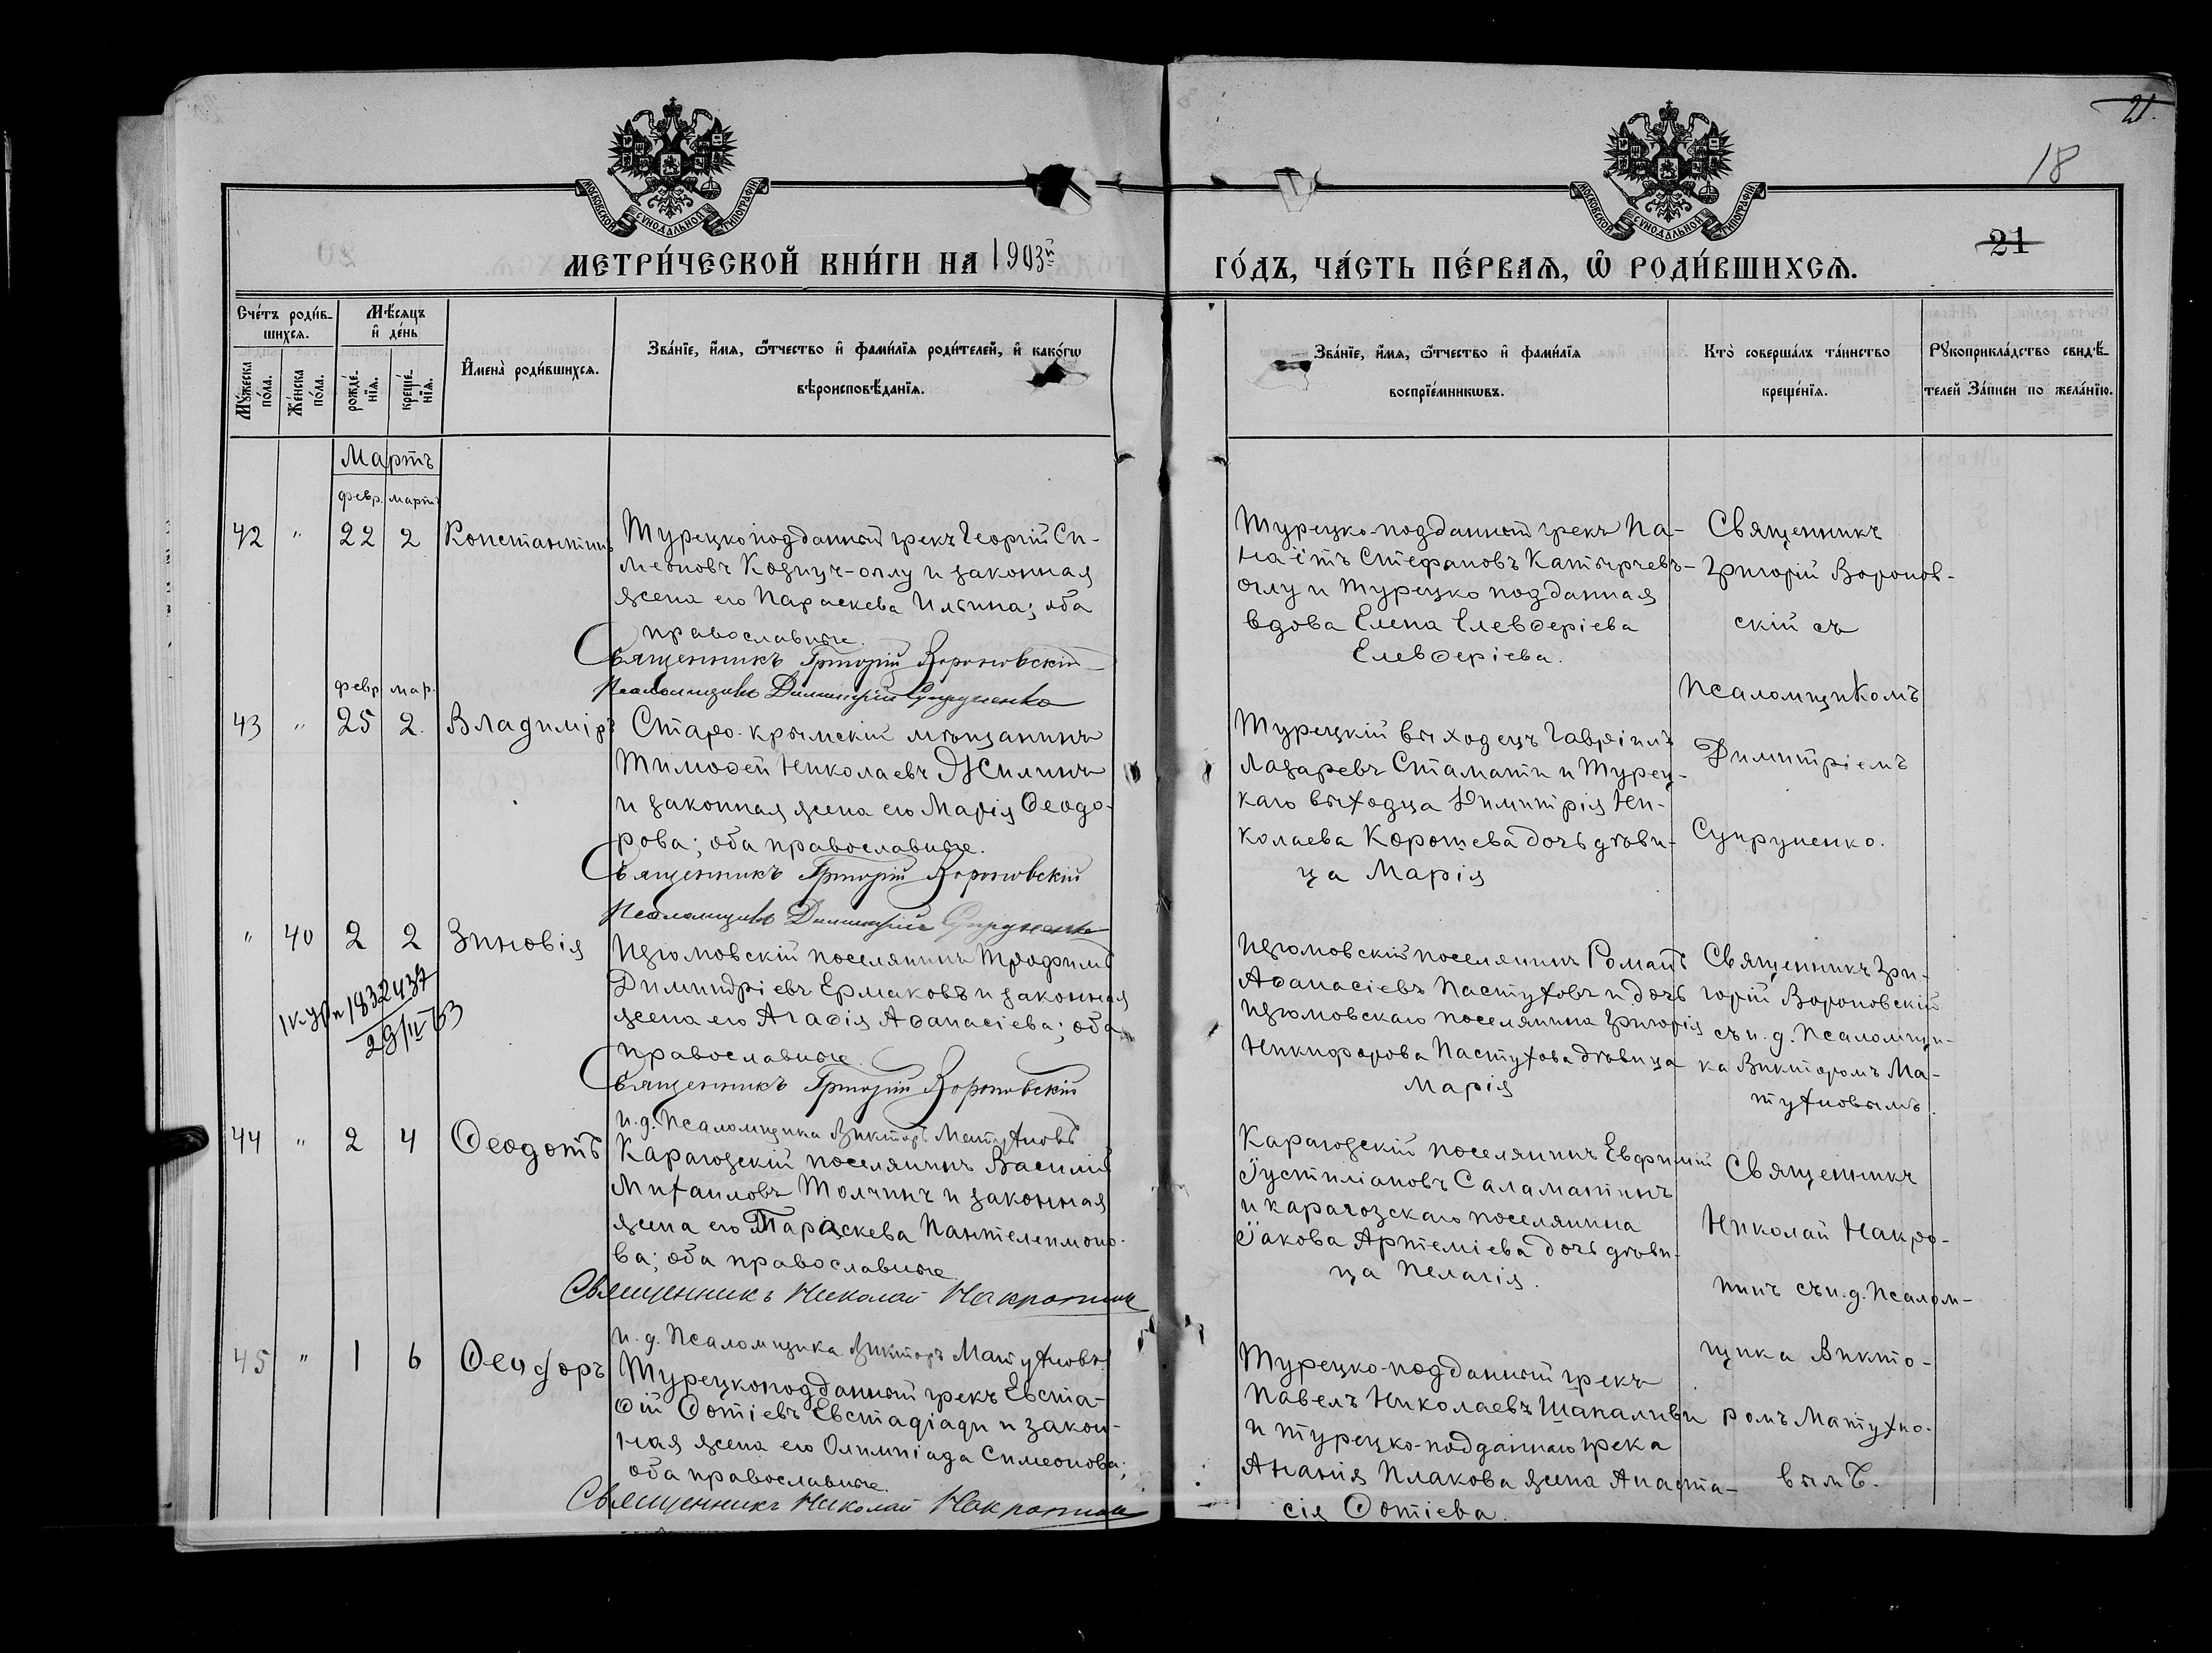 21.
18
МОСКОВСКОЙ СѴНОДАЛЬНОЙ ТИПОГРАФІИ.
МОСКОВСКОЙ СѴНОДАЛЬНОЙ ТИПОГРАФІИ.
21
МЕТРИ́ЧЕСКОЙ КНИ́ГИ НА 1903й
ГО́ДЪ, ЧА́СТЬ ПЕ́РВАѦ, Ѽ РОДИ́ВШИХСѦ.
Сче́тъ роди́в-
шихсѧ.
Мѣ́сѧцъ
и҆ де́нь
Мꙋ́жеска
по́ла.
Же́нска
по́ла.
рожде́-
нїѧ.
креще́-
нїѧ.
И҆мена̀ роди́вшихсѧ.
Зва́нїе, и҆́мѧ, ѻ҆́тчество и҆ фами́лїѧ роди́телей, и҆ како́гѡ
вѣроисповѣ́данїѧ.
Зва́нїе, и҆́мѧ, ѻ҆́тчество и҆ фами́лїѧ
воспрїе́мникѡвъ.
Кто̀ соверша́лъ та́инство
креще́нїѧ.
Рꙋкоприкла́дство свидѣ́-
телей за́писи по жела́нїю.
Мартъ
февр. мартъ
42 " 22 2 Константинъ
Турецкоподданный грекъ Георгій Си-
меоновъ Козиуч-оглу и законная
жена его Параскева Ильина; оба
православные.
Священникъ Григорій Вороновскій
Псаломщикъ Димитрій Супруненко
Турецко-подданный грекъ Па-
на-iотъ Стефановъ Катырчевъ-
оглу и турецко подданная
вдова Елена Елевѳеріева
Елевѳеріева.
Священникъ
Григорій Воронов-
скій съ
псаломщикомъ
Димитріемъ
Супруненко.
февр. мар.
43 " 25 2. Владиміръ
Старо-крымскій мѣщанинъ
Тимоѳей Николаевъ Жилинъ
и законная жена его Марія Ѳеодо-
рова; оба православные.
Священникъ Григорій Вороновскій
Псаломщикъ Димитрій Супруненко
Турецкій выходецъ Гавріилъ
Лазаревъ Стамати и Турец-
каго выходца Димитрія Ни-
колаева Корошева дочь дѣви-
ца Марія
" 40 2 2 Зиновія
1832437
Изюмовскій поселянинъ Трофимъ
Димитріевъ Ермаковъ и законная
жена его Агаѳія Аѳанасіева; оба
православные.
Священникъ Григорій Вороновскій
и. д. Псаломщика Викторъ Матухновъ
Изюмовскій поселянинъ Романъ
Аѳанасіевъ Пастуховъ и дочь
изюмовскаго поселянина Григорія
Никифорова Пастухова дѣвица
Марія
Священникъ Гри-
горій Вороновскій
съ и. д. псаломщи-
ка Викторомъ Ма-
тухновымъ.
44 " 2 4 Ѳеодотъ
Карагозскій поселянинъ Василій
Михаиловъ Толчинъ и законная
жена его Параскева Пантелеимоно-
ва; оба православные
Священникъ Николай Накропинъ
и. д. Псаломщика Викторъ Матухновъ
Карагозскій поселянинъ Евфимій
Іустиліановъ Саламатинъ
и карагозскаго поселянина
Іакова Артеміева дочь дѣви-
ца Пелагія.
Священникъ
Николай Накро-
пинъ съ и. д. псалом-
щика Викто-
ромъ Матухно-
вымъ.
45 " 1 6 Ѳеодоръ
Турецкоподданный грекъ Евста-
ѳій Ѳотіевъ Евстадіади и закон-
ная жена его Олимпіада Симеонова;
оба православные.
Священникъ Николай Накропинъ
Турецко-подданный грекъ
Павелъ Николаевъ Шапаливи
и турецко-подданнаго грека
Ананія Плакова жена Анаста-
сія Ѳотіева.